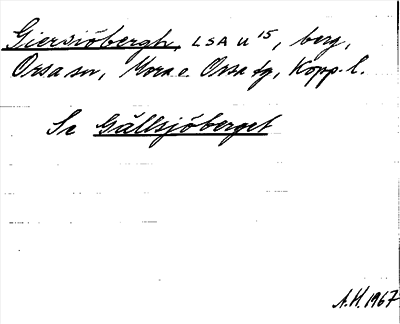 Giersiöbergh, LSA U 15, berg,
Orsa sn, Mora o. Orsa tg, Kopp. l.
Se Gällsjöberget
A.H. 1967